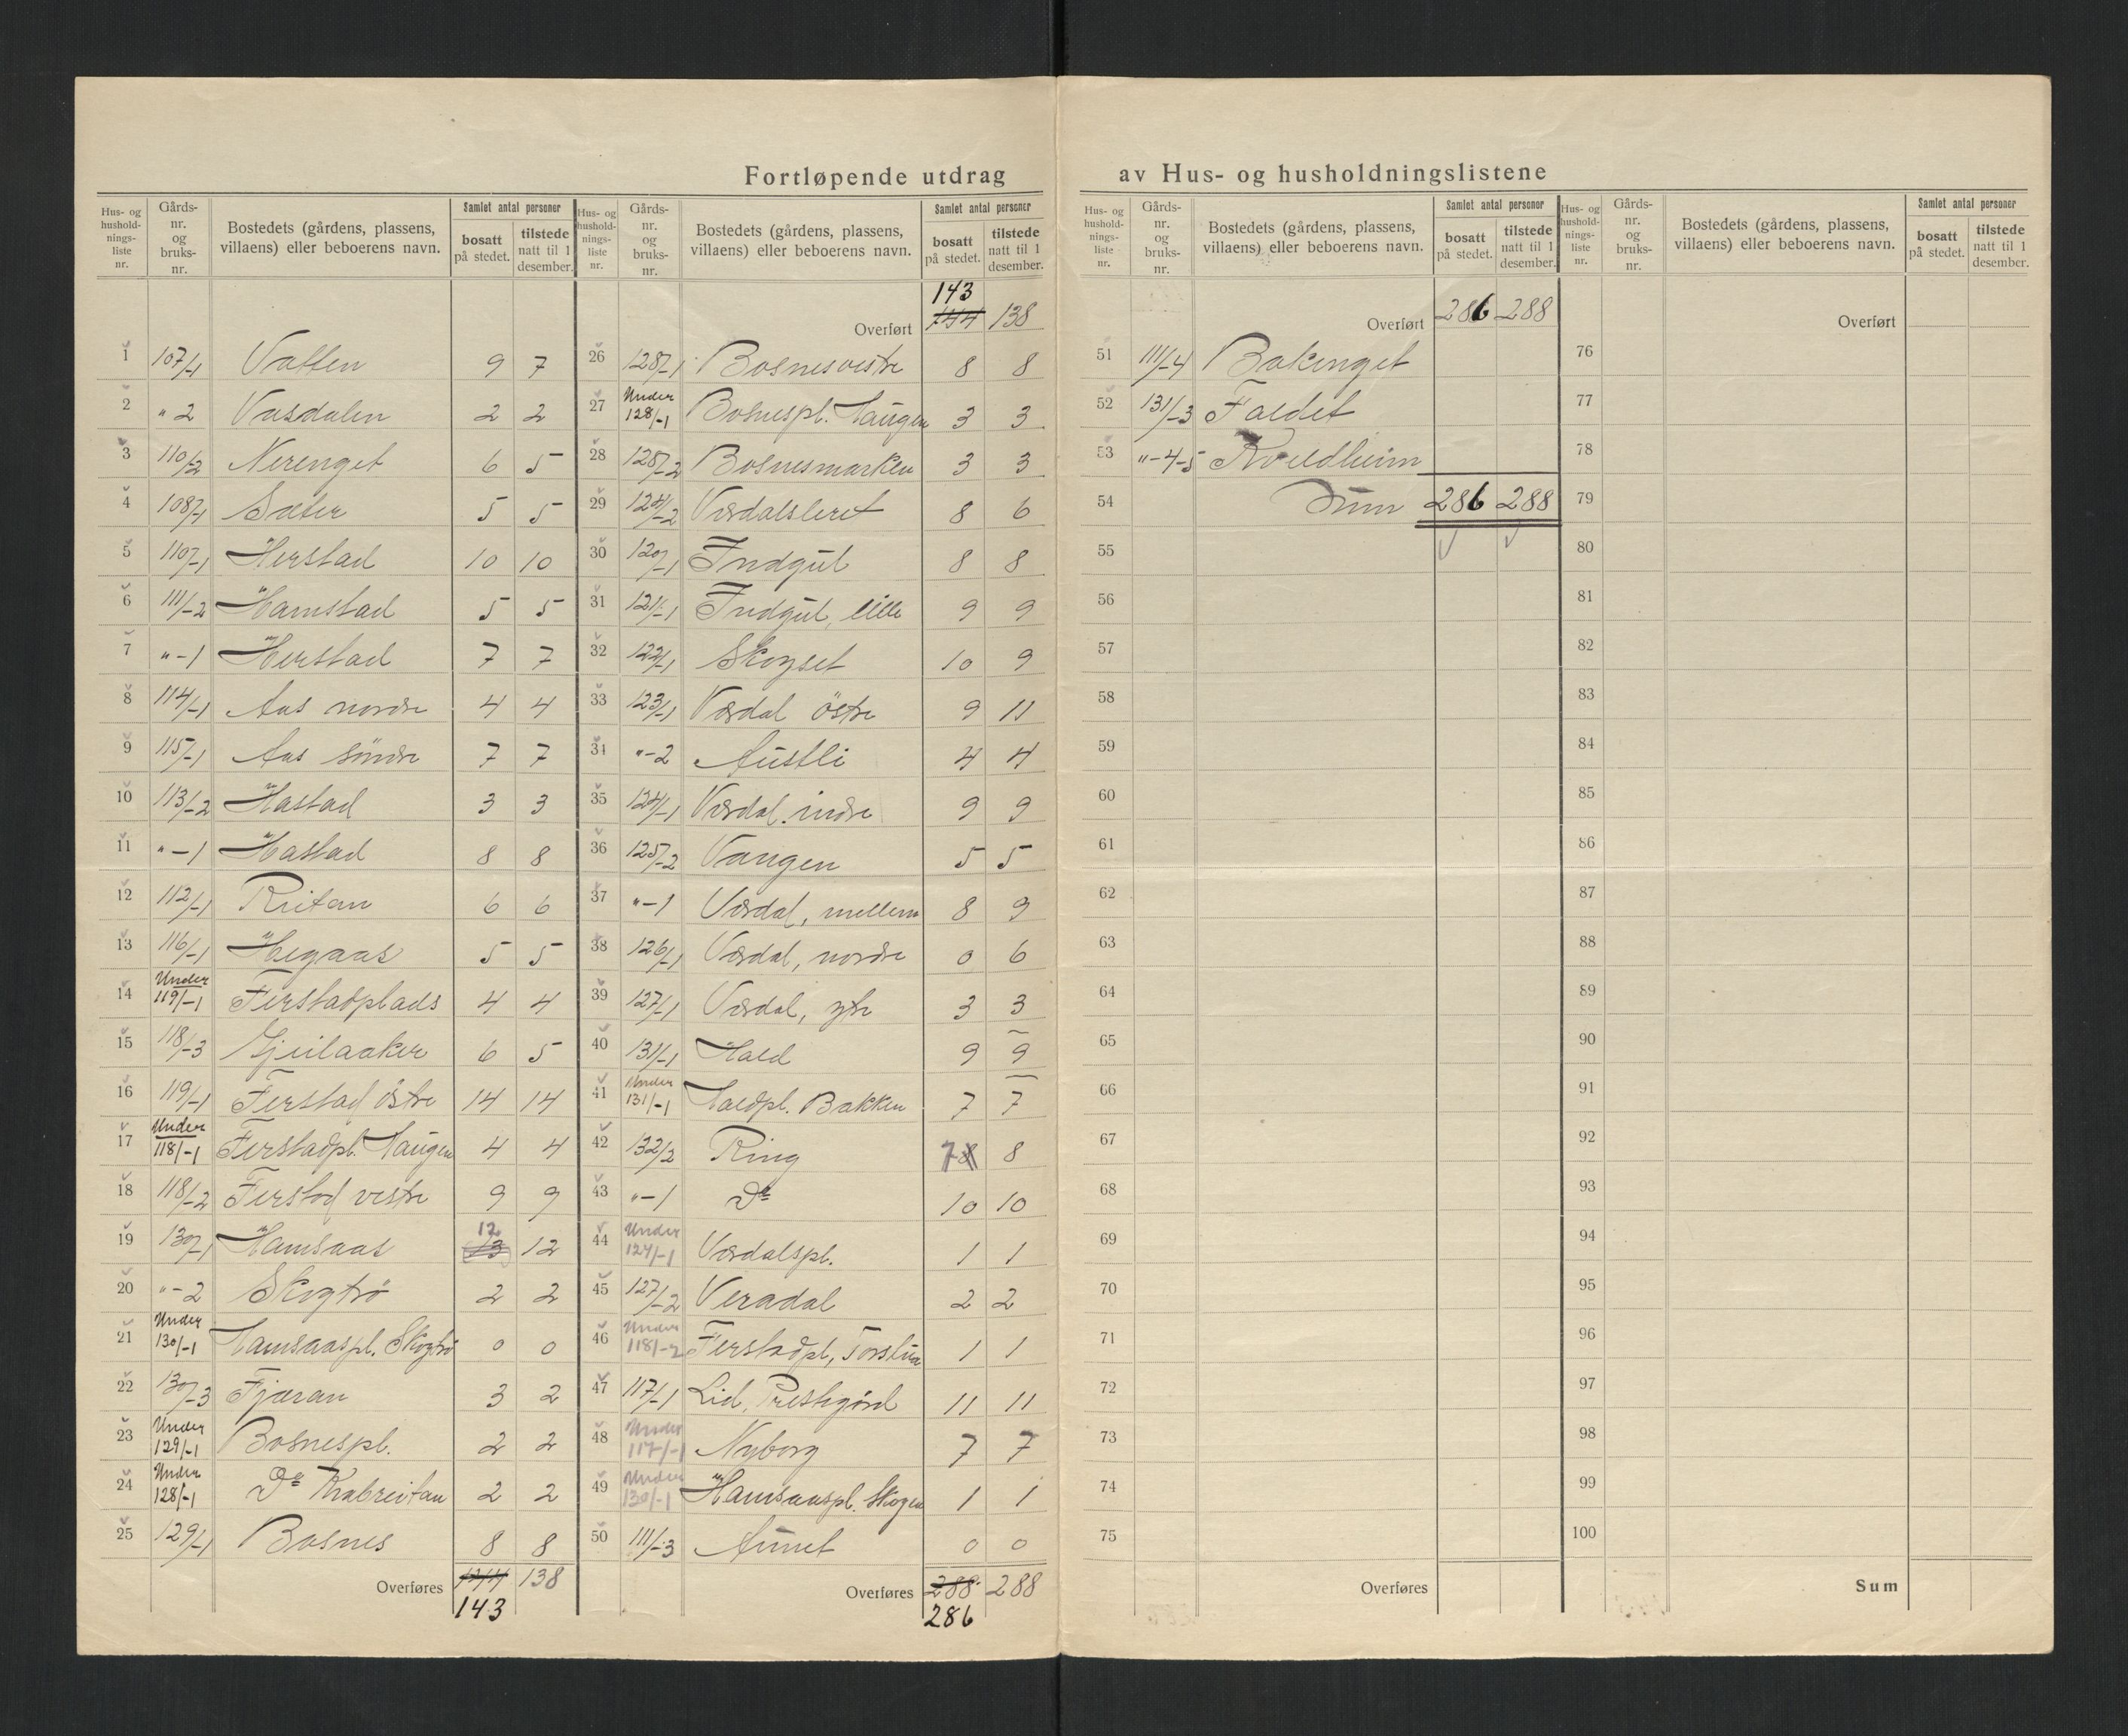 Fortløpende utdrag av Hus- og husholdningslistene
Hus- og hushold-nings-liste nr. Gårds-nr. og bruks-nr. Bostedets (gårdens, plassens, villaens) eller beboerens navn. Samlet antal personer bosatt på stedet. tilstede natt til 1 desember.
1 107/-1 Vatten 9 7
2 " 2 Vasdalen 2 2
3 110/-2 Nerenget 6 5
4 108/-1 Sæter 5 5
5 110/-1 Herstad 10 10
6 111/-2 Hamstad 5 5
7 "-1 Herstad 7 7
8 114/-1 Aas nordre 4 4
9 115/-1 Aas söndre 7 7
10 113/-2 Hastad 3 3
11 "-1 Hastad 8 8
12 112/-1 Reitan 6 6
13 116/-1 Hegaas 5 5
14 Under 119/-1 Ferstadplads 4 4
15 118/-3 Gjeilaaker 6 5
16 119/-1 Ferstad östre 14 14
17 Under 118/-1 Ferstadpl. Haugen 4 4
18 118/-2 Ferstad vestre 9 9
19 130/-1 Hamsaas 13 12 12
20 "-2 Skogtrö 2 2
21 Under 130/-1 Hamsaaspl. Skogtrö 0 0
22 130/-3 Fjæran 3 2
23 Under 129/-1 Bosnespl. 2 2
24 Under 128/-1 Do Krabreitan 2 2
25 129/-1 Bosnes 8 8
Overføres 144 138
143
Hus- og hushold-nings-liste nr. Gårds-nr. og bruks-nr. Bostedets (gårdens, plassens, villaens) eller beboerens navn. Samlet antal personer bosatt på stedet. tilstede natt til 1 desember.
143
Overført 144 138
26 128/-1 Bosnesvestre 8 8
27 Under 128/-1 Bosnespl. Haugen 3 3
28 128/-2 Bosnesmarken 3 3
29 124/-2 Værdalsleret 8 6
30 120/-1 Indgul 8 8
31 121/-1 Indgul, lille 9 9
32 122/-1 Skogset 10 9
33 123/-1 Værdal östre 9 11
34 "-2 Austli 4 4
35 124/-1 Værdal indre 9 9
36 125/-2 Vangen 5 5
37 "-1 Værdal, mellem 8 9
38 126/-1 Værdal, nordre 0 6
39 127/-1 Værdal, ytre 3 3
40 131/-1 Hald 9 9
41 Under 131/-1 Haldpl. Bakken 7 7
42 132/2 Ring 7 8 8
43 "-1 Do 10 10
44 Under 124/-1 Værdalspl. 1 1
45 127/-2 Veradal 2 2
46 Under 118/-2 Ferstadpl, Torstua 1 1
47 117/-1 Lid, Prestegård 11 11
48 Under 117/-1 Nyborg 7 7
49 Under 130/-1 Hamsaaspl. Skogen 1 1
50 111/-3 Aunet 0 0
Overføres 288 288
286
Hus- og hushold-nings-liste nr. Gårds-nr. og bruks-nr. Bostedets (gårdens, plassens, villaens) eller beboerens navn. Samlet antal personer bosatt på stedet. tilstede natt til 1 desember.
Overført 286 288
51 111/-4 Bakenget
52 131/-3 Faldet
53 "-4-5
54 Sum 286 288
55
56
57
58
59
60
61
62
63
64
65
66
67
68
69
70
71
72
73
74
75
Overføres
Hus- og hushold-nings-liste nr. Gårds-nr. og bruks-nr. Bostedets (gårdens, plassens, villaens) eller beboerens navn. Samlet antal personer bosatt på stedet. tilstede natt til 1 desember.
Overført
76
77
78
79
80
81
82
83
84
85
86
87
88
89
90
91
92
93
94
95
96
97
98
99
100
Sum